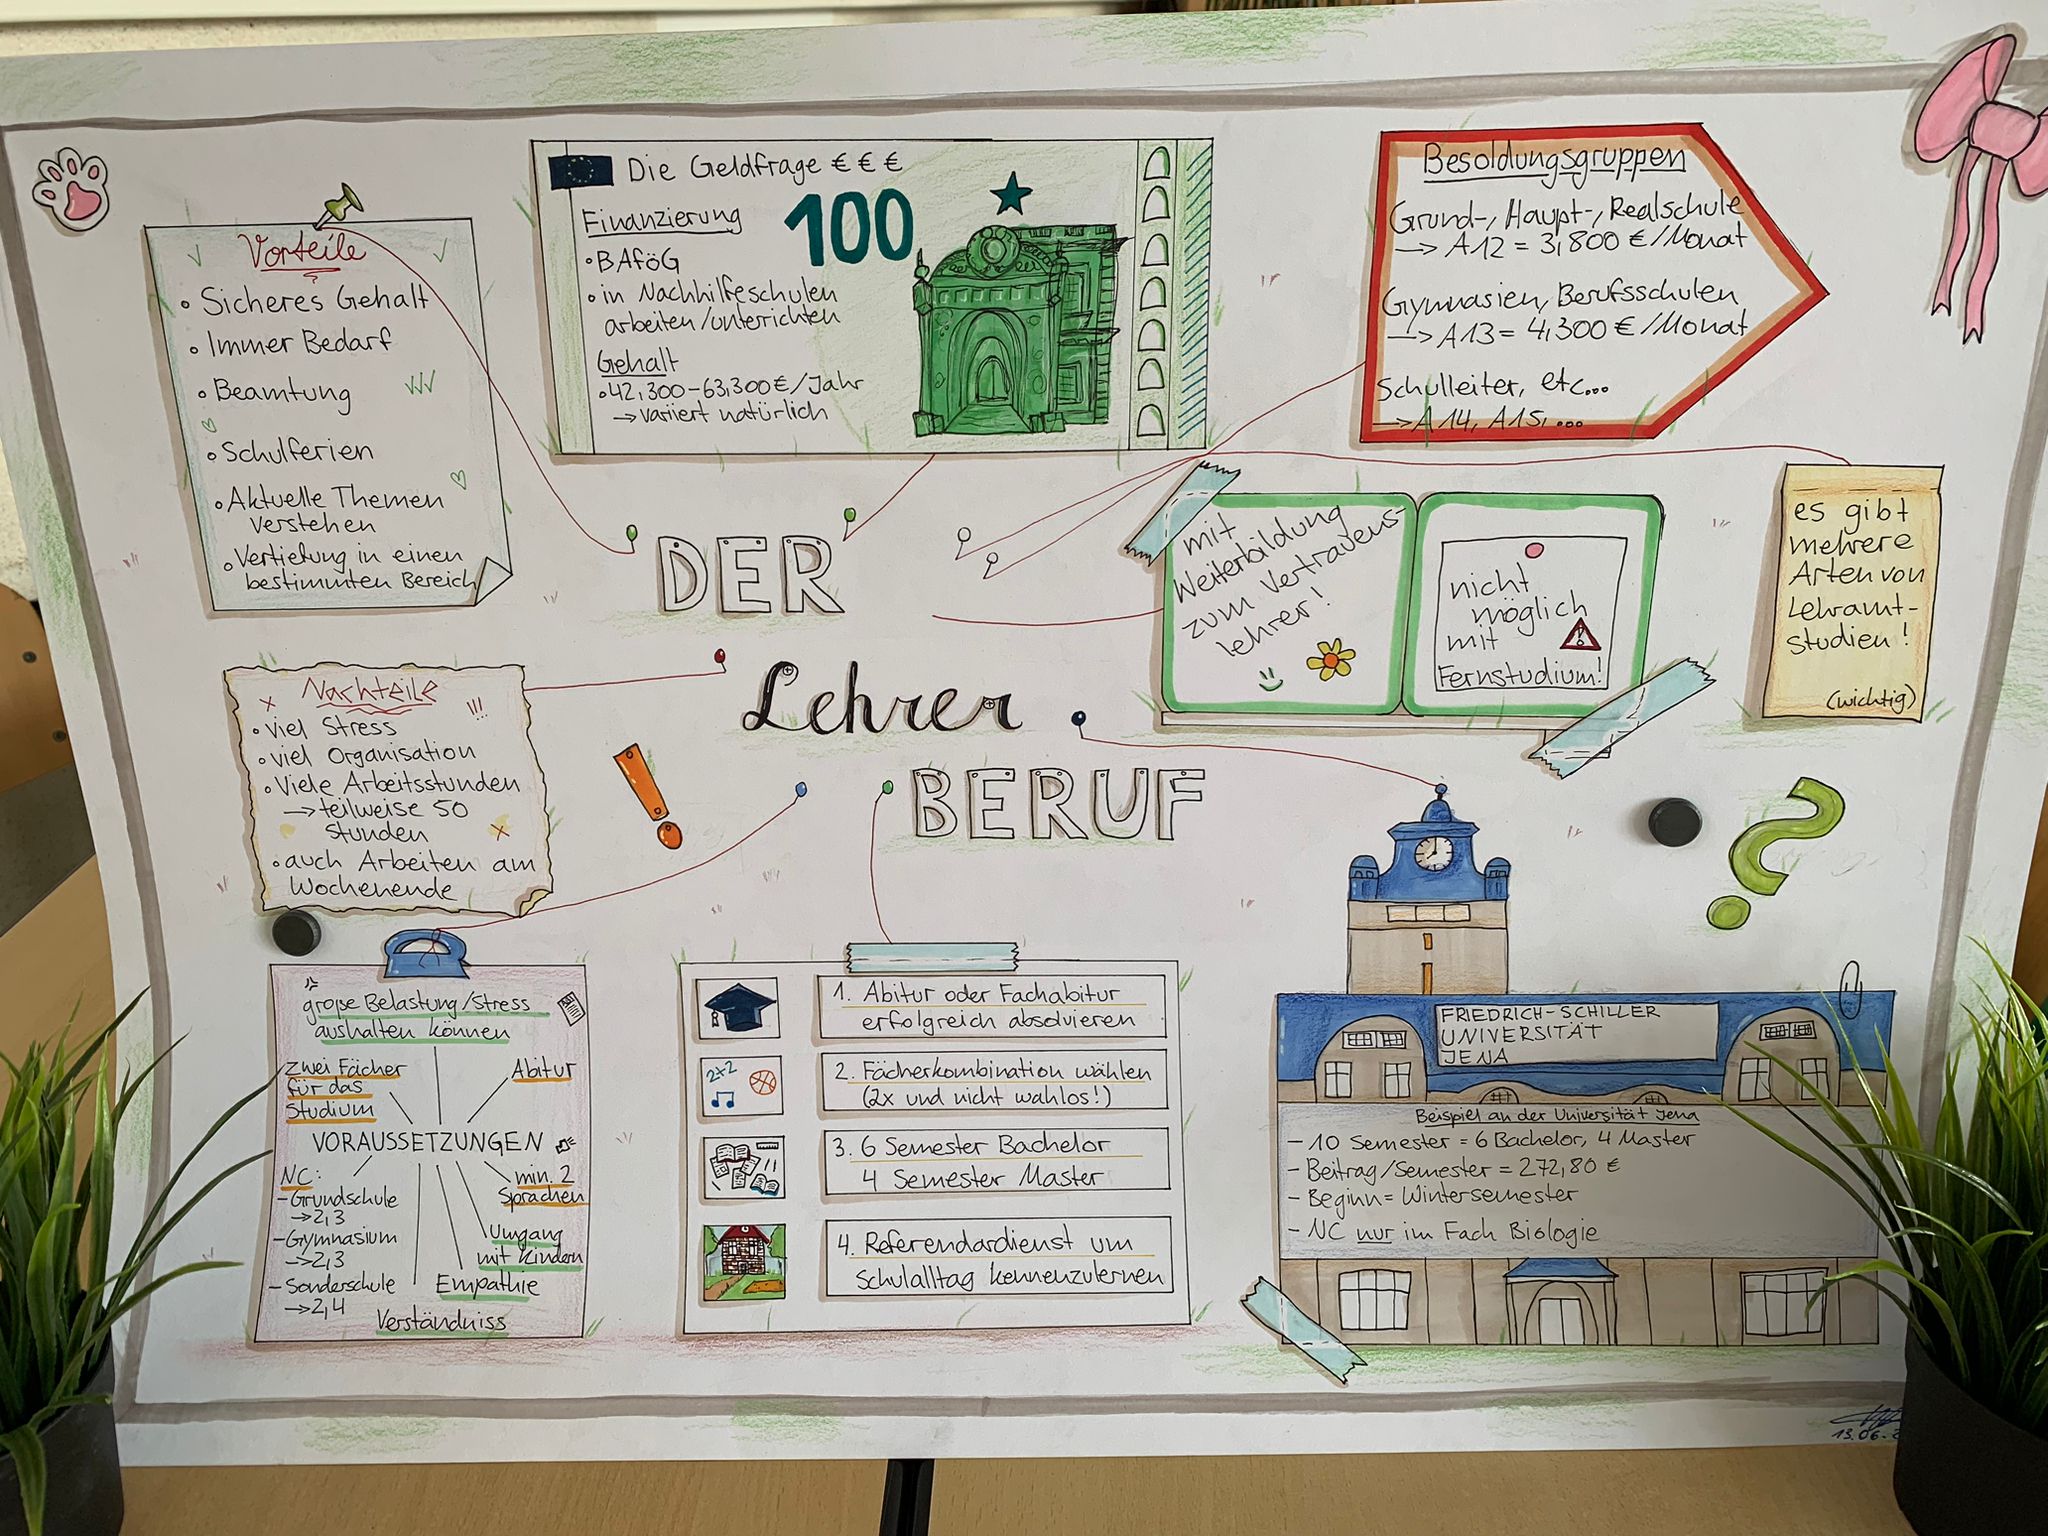 Vorteile
• Sicheres Gehalt
• Immer Bedarf
• Beamtung
• Schulferien
• Aktuelle Themen
verstehen
• Vertiefung in einen
bestimmten Bereich
Die Geldfrage € € €
Finanzierung
100
• BAföG
• in Nachhilfeschulen
arbeiten/unterrichten
Gehalt
• 42,300-63,300€/Jahr
→ variiert natürlich
Besoldungsgruppen
Grund-, Haupt-, Realschule
→ A12 = 3,800 €/Monat
Gymnasien, Berufsschulen
→ A13 = 4,300 €/Monat
Schulleiter, etc...
→ A14, A15, ...
DER
Lehrer
BERUF
mit
Weiterbildung
zum Vertrauens-
lehrer!
nicht
möglich
mit
Fernstudium!
es gibt
mehrere
Arten von
Lehramt-
studien!
(wichtig)
Nachteile
• viel Stress
• viel Organisation
• Viele Arbeitsstunden
→ teilweise 50
Stunden
• auch Arbeiten am
Wochenende
große Belastung/Stress
aushalten können
zwei Fächer
für das
Studium
Abitur
VORAUSSETZUNGEN
NC:
- Grundschule
→ 2,3
- Gymnasium
→ 2,3
- Sonderschule
→ 2,4
min. 2
Sprachen
Umgang
mit Kindern
Empathie
Verständniss
1. Abitur oder Fachabitur
erfolgreich absolvieren
2x2
2. Fächerkombination wählen
(2x und nicht wahlos!)
3. 6 Semester Bachelor
4 Semester Master
4. Referendardienst um
Schulalltag kennenzulernen
FRIEDRICH-SCHILLER
UNIVERSITÄT
JENA
Beispiel an der Universität Jena
- 10 Semester = 6 Bachelor, 4 Master
- Beitrag/Semester = 272,80 €
- Beginn = Wintersemester
- NC nur im Fach Biologie
13.06.